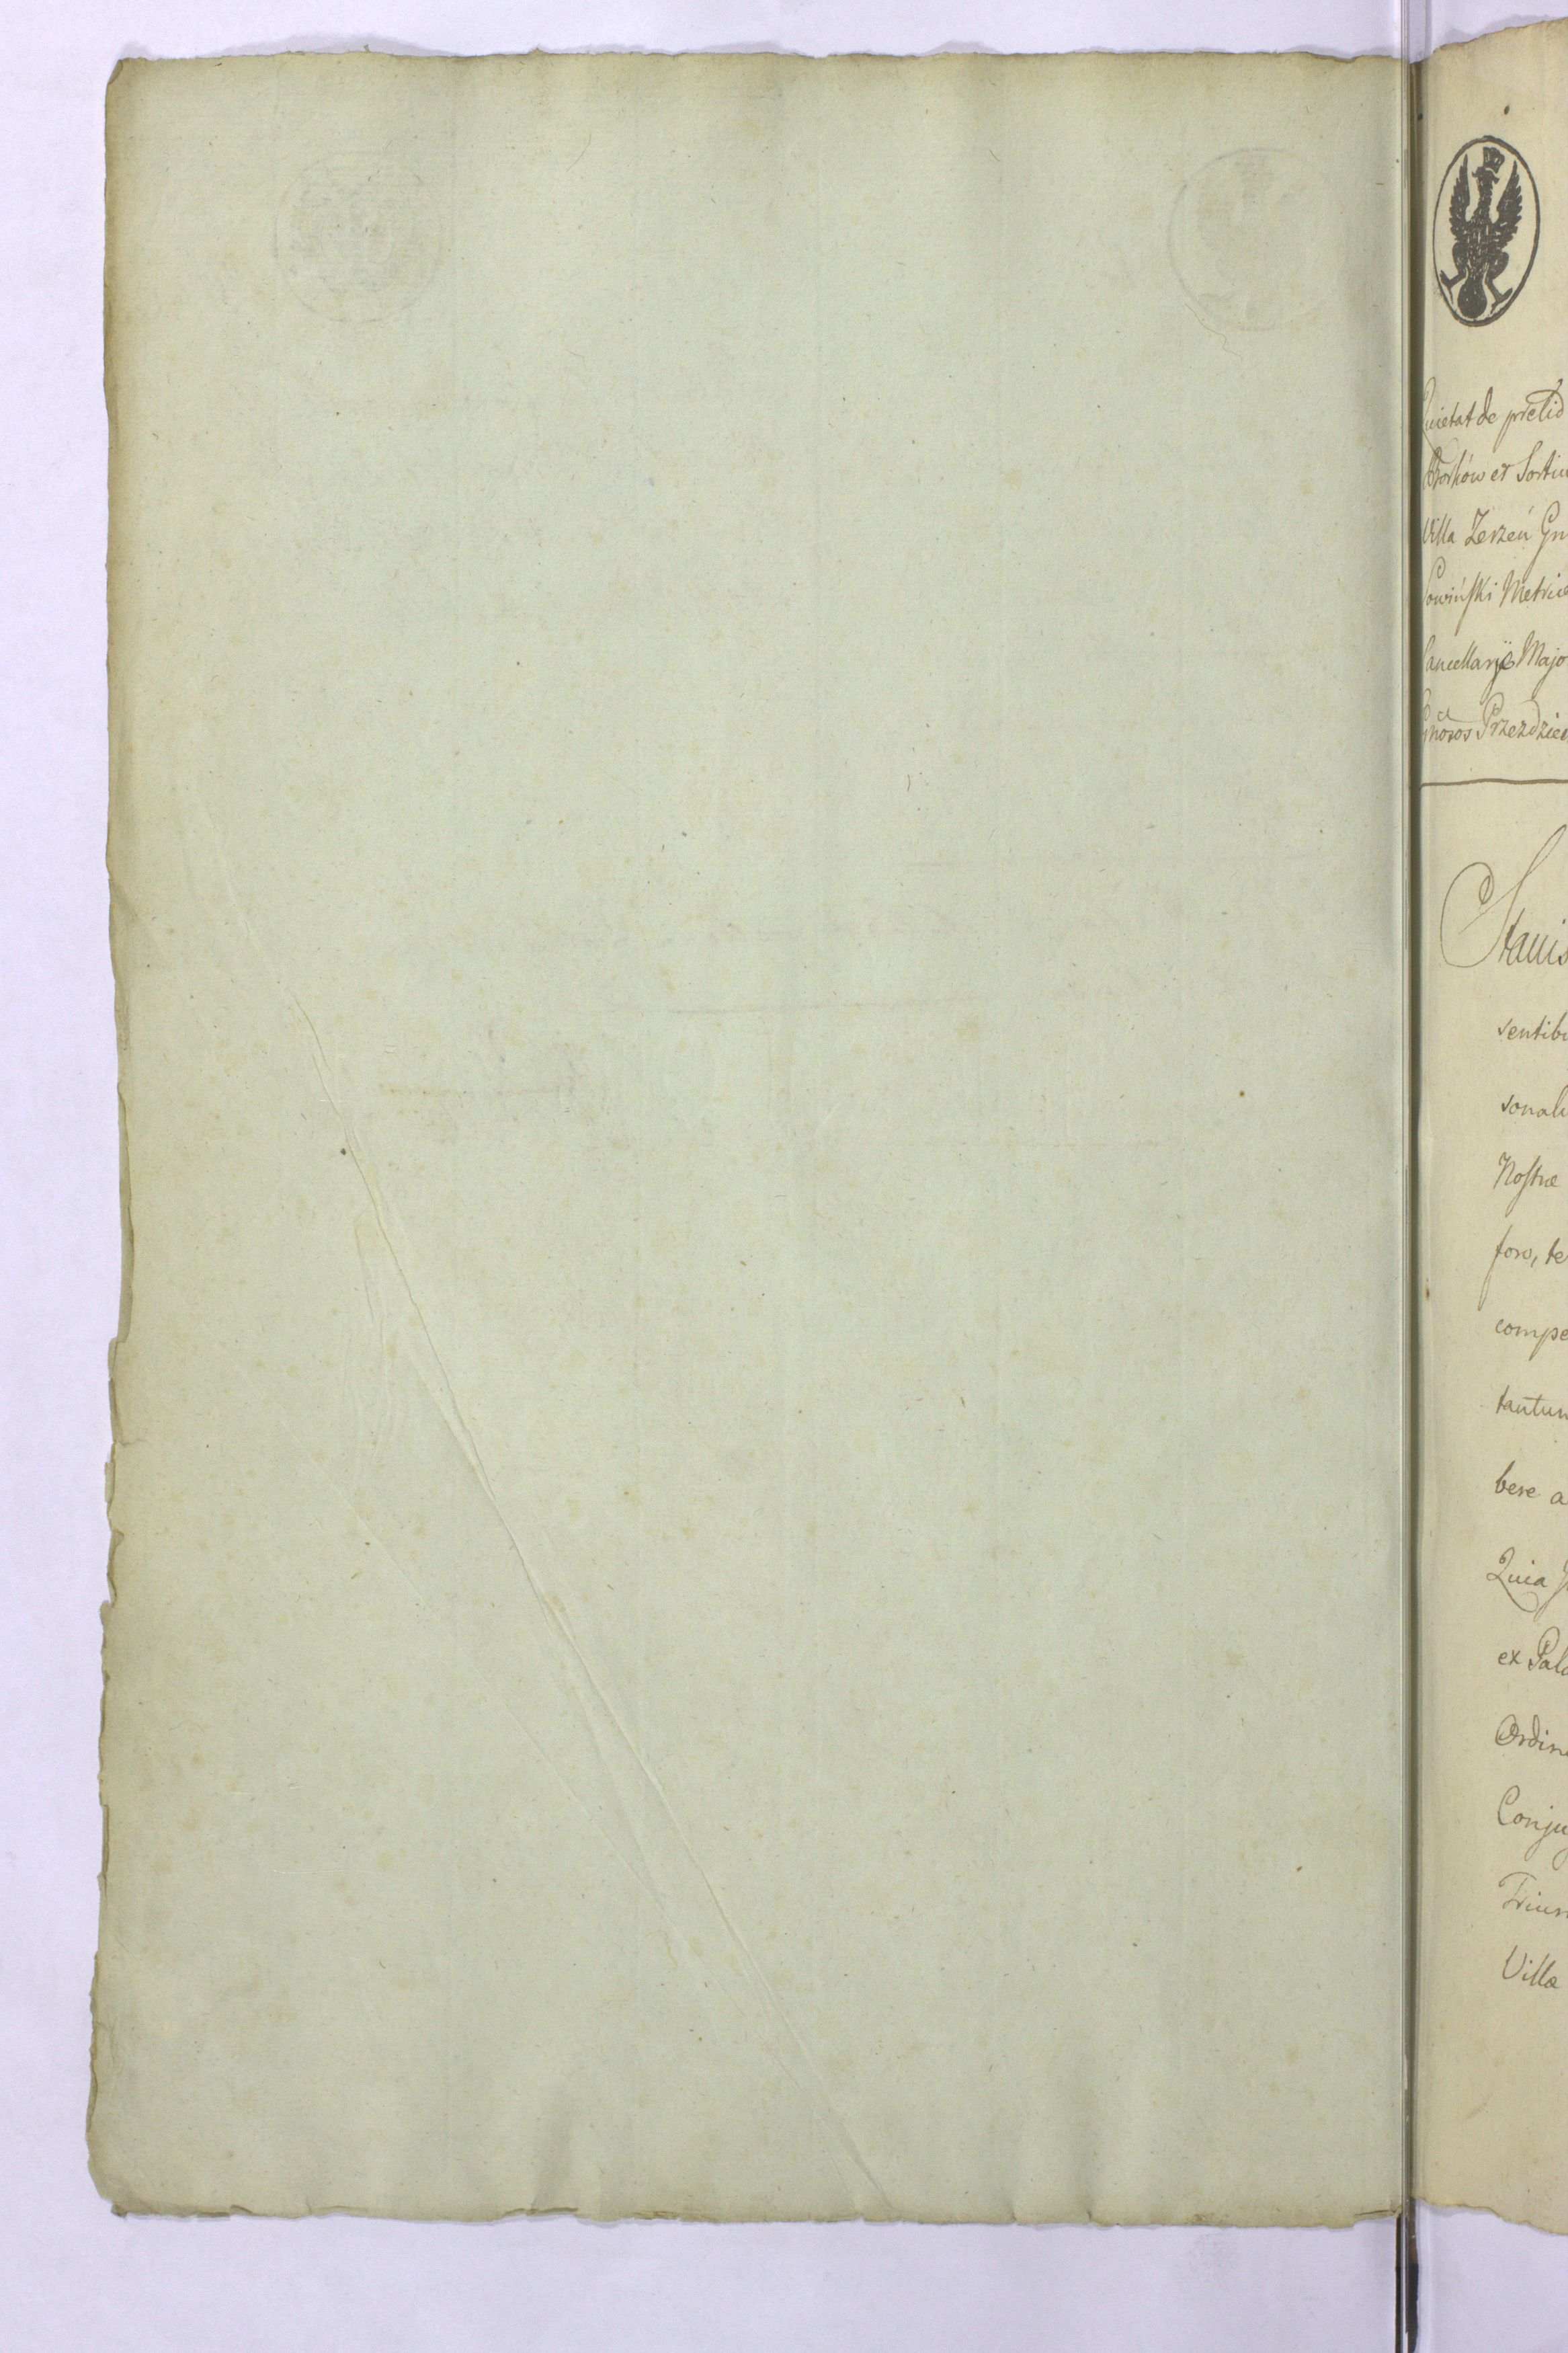 Quietat de pretio
Borków et Sortiu
Villa Zerzeń Gn
Sowińſki Metrice
Cancellaryæ Majo
Gnosos Przezdziec
Stanis
sentibu
sonali
Noſtræ
foro, te
compe
tantum
bere a
Quia
ex Pala
Ordina
Conjug
Trium
Villæ